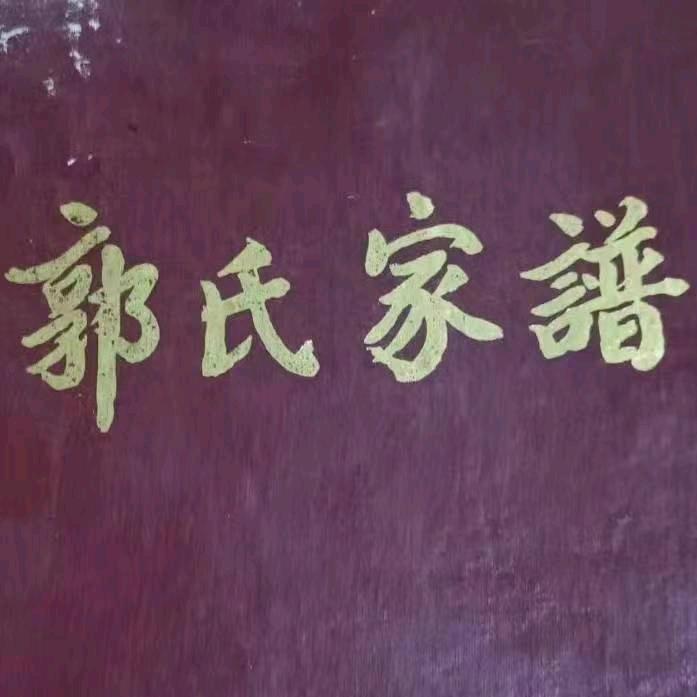 郭氏家譜